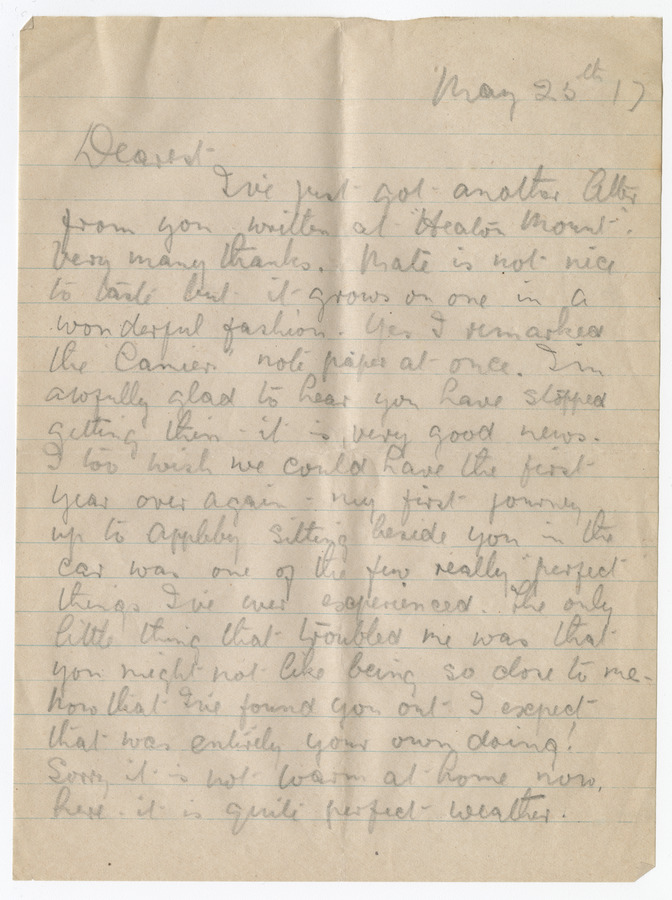 May 25th 17
Dearest
I've just got another letter
from you written at "Heaton Mount".
Very many thanks. Maté is not nice
to taste but it grows on one in a
wonderful fashion. Yes I remarked
the note paper at once. I'm
awfully glad to hear you have stopped
getting thin - it is very good news.
I too wish we could have the first
year over again - my first journey
up to Appleby sitting beside you in the
car was one of the few really "perfect"
things I've ever experienced. The only
little thing that troubled me was that
you might not like being so close to me -
now that I've found you out I expect
that was entirely your own doing!
Sorry it is not warm at home now,
here it is quite perfect weather.